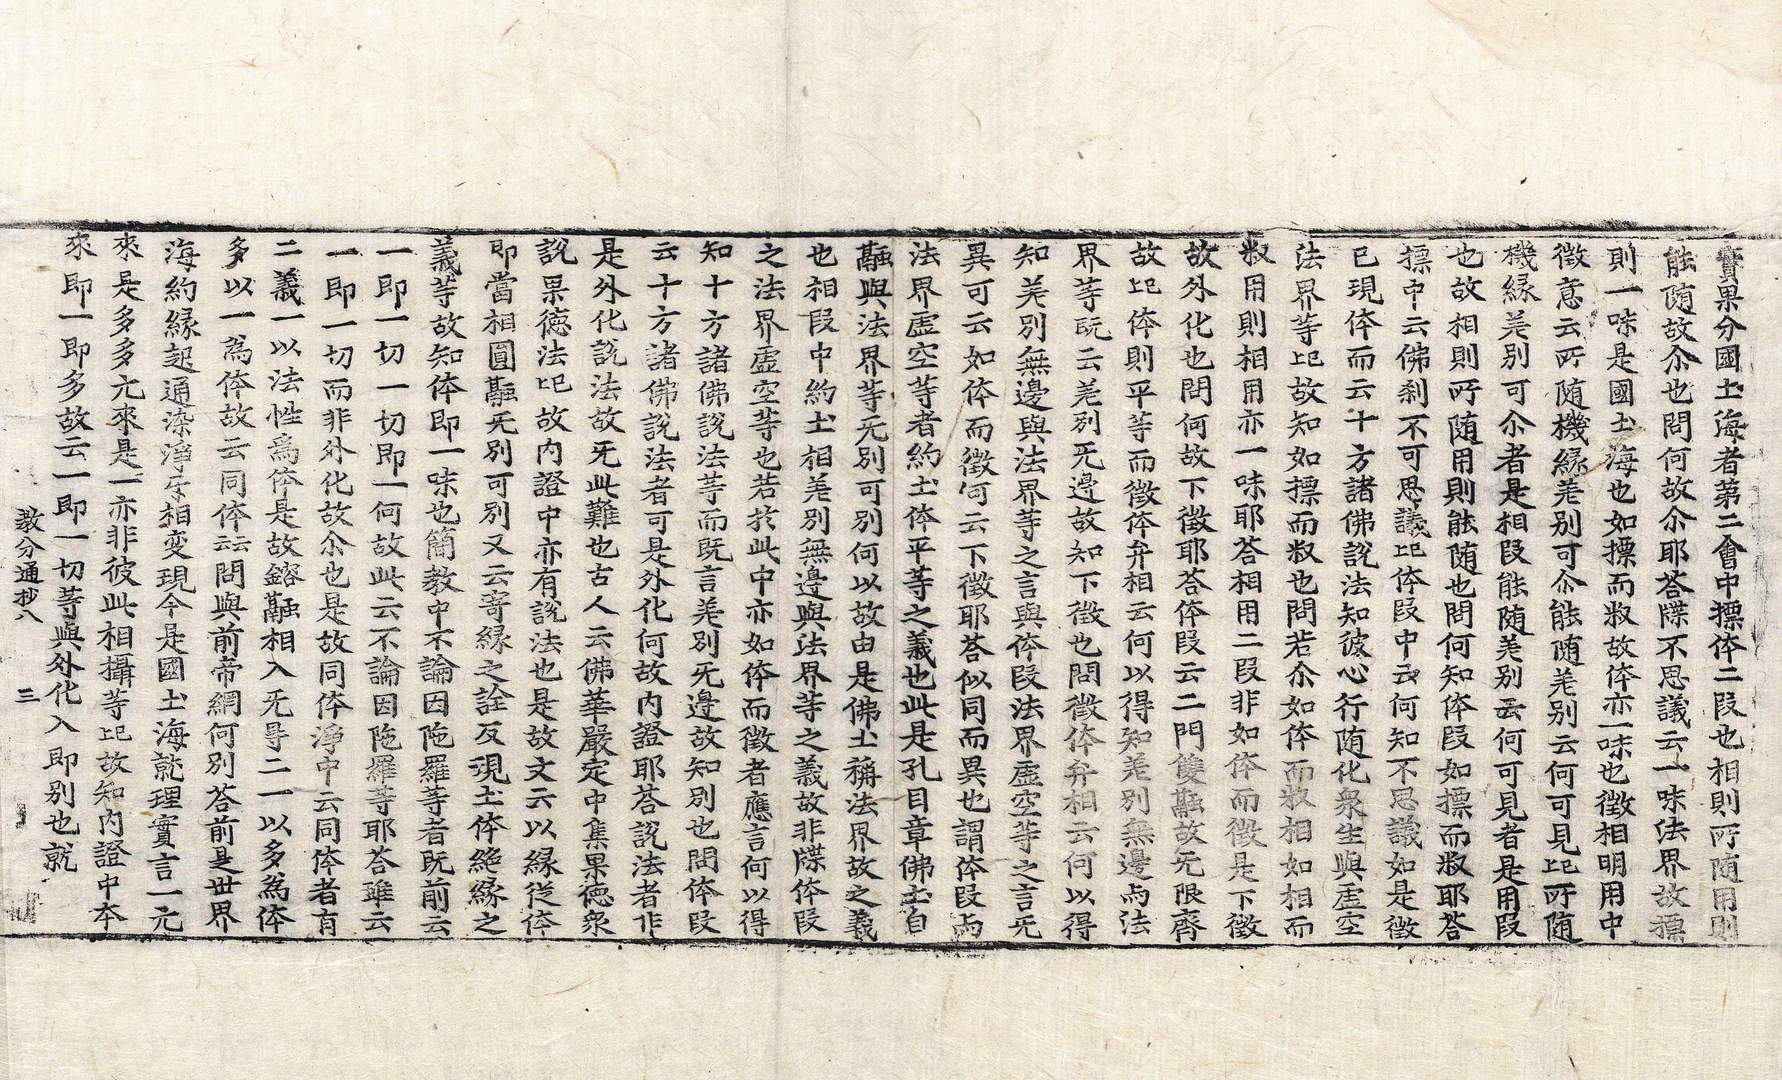 實果分國土海者第二會中摽体二段也相則所随用則
能随故尒也問何故尒耶荅牒不思議云一味法界故摽
則一味是國土海也如摽而叙故体亦一味也徵相明用中
徵意云所随機緣差別可尒能随差別云何可見此所随
機緣差別可尒者是相段能随差別云何可見者是用段
也故相則所随用則能随也問何知体段如摽而叙耶荅
摽中云佛刹不可思議此体段中云何知不思議如是徵
已現体而云十方諸佛說法知彼心行随化衆生與虛空
法界等此故知如摽而叙也問若尒如体而叙相如相而
叙用則相用亦一味耶荅相用二段非如体而徵是下徵
故外化也問何故下徵耶荅体段云二門雙融故无限齊
故此体則平等而徵体弁相云何以得知差別無邊而法
界等旣云差別无邊故知下徵也問徵体弁相云何以得
知差別無邊與法界等之言與体段法界虛空等之言无
異可云如体而徵何云下徵耶荅似同而異也謂体段而
法界虛空等者約土体平等之義也此是孔目章佛土自
融與法界等无別可別何以故由是佛土稱法界故之義
也相段中約土相差別無邊與法界等之義故非牒体段
之法界虛空等也若於此中亦如体而徵者應言何以得
知十方諸佛說法等而旣言差別无邊故知別也問体段
云十方諸佛說法者可是外化何故內證耶荅說法者非
是外化說法故无此難也古人云佛華嚴定中集果德衆
說果德法此故內證中亦有說法也是故文云以緣從体
即當相圓融无別可別又云寄緣之詮反現土体絶緣之
義等故知体即一味也簡教中不論因陁羅等者旣前云
一即一切一切即一何故此云不論因陁羅等耶荅雖云
一即一切而非外化故尒也是故同体淨中云同体者有
二義一以法性爲体是故鎔融相入无导二一以多爲体
多以一爲体故云同体云云問與前帝網何別荅前是世界
海約緣起通染淨互相變現今是國土海就理實言一元
來是多多元來是一亦非彼此相攝等此故知內證中本
來即一即多故云一即一切等與外化入即別也就
教分通抄八　三